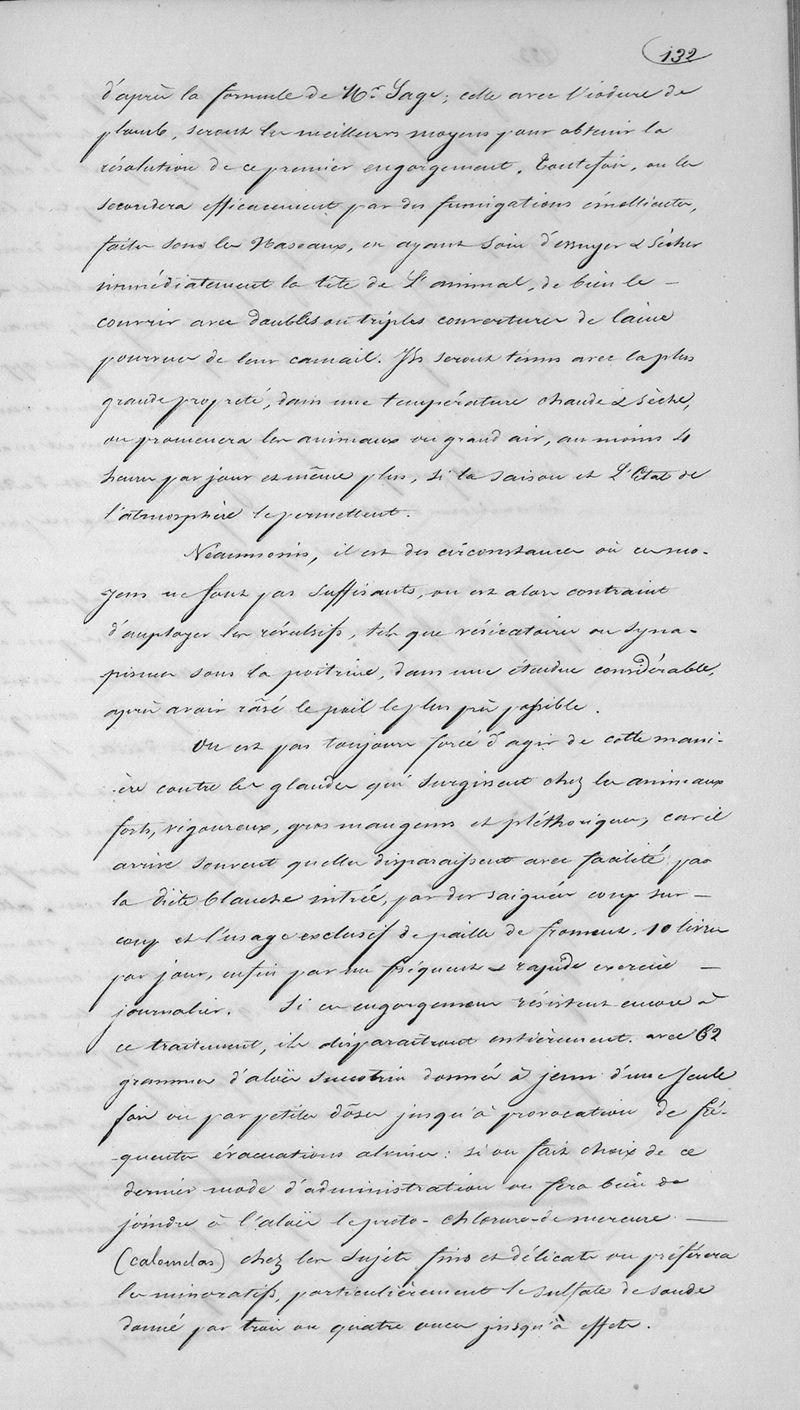 132
d'après la formule de Mr Sage; celle avec l'iodure de
plomb, seront les meilleurs moyens pour obtenir la
résolution de ce premier engorgement. Toutefois, on les
secondera efficacement par des fumigations émollientes,
faites sous les Naseaux, en ayant soin d'essuyer & sécher
immédiatement la tête de L'animal, de bien le —
couvrir avec doubles ou triples couvertures de laine
pourvues de leur camail. Ils seront tenus avec la plus
grande propreté, dans une température chaude & sèche,
on promenera les animaux au grand air, au moins 4
heures par jour et même plus, si la saison et L'Etat de
l'atmosphère le permettent.
Néanmoins, il est des circonstances où ces mo-
yens ne sont pas suffisants, on est alors contraint
d'employer les révulsifs, tels que vésicatoires ou syna-
pismes sous la poitrine, dans une étendue considérable,
après avoir râsé le poil le plus près possible.
On est pas toujours forcé d'agir de cette mani-
-ère contre les glandes qui surgissent chez les animaux
forts, vigoureux, gros mangeurs et pléthoriques, car il
arrive souvent quelles disparaissent avec facilité par
la diète blanche nitrée, par des saignées coup sur —
coup et l'usage exclusif de paille de froment. 10 livres
par jour, enfin par un fréquent & rapide exercice —
journalier. Si ces engorgemens résistent encore à
ce traitement, ils disparaîtront entièrement avec 62
grammes d'aloës succotrin donnés à jeun d'une seule
fois ou par petites dôses jusqu'à provocation de fré-
-quentes évacuations alvines: si on fait choix de ce
dernier mode d'administration on fera bien de
joindre à l'aloës le proto-chlorure de mercure —
(calomelas) chez les sujets fins et délicats on préférera
les minoratifs, particulièrement le sulfate de soude
donné par trois ou quatre onces jusqu'à effets.